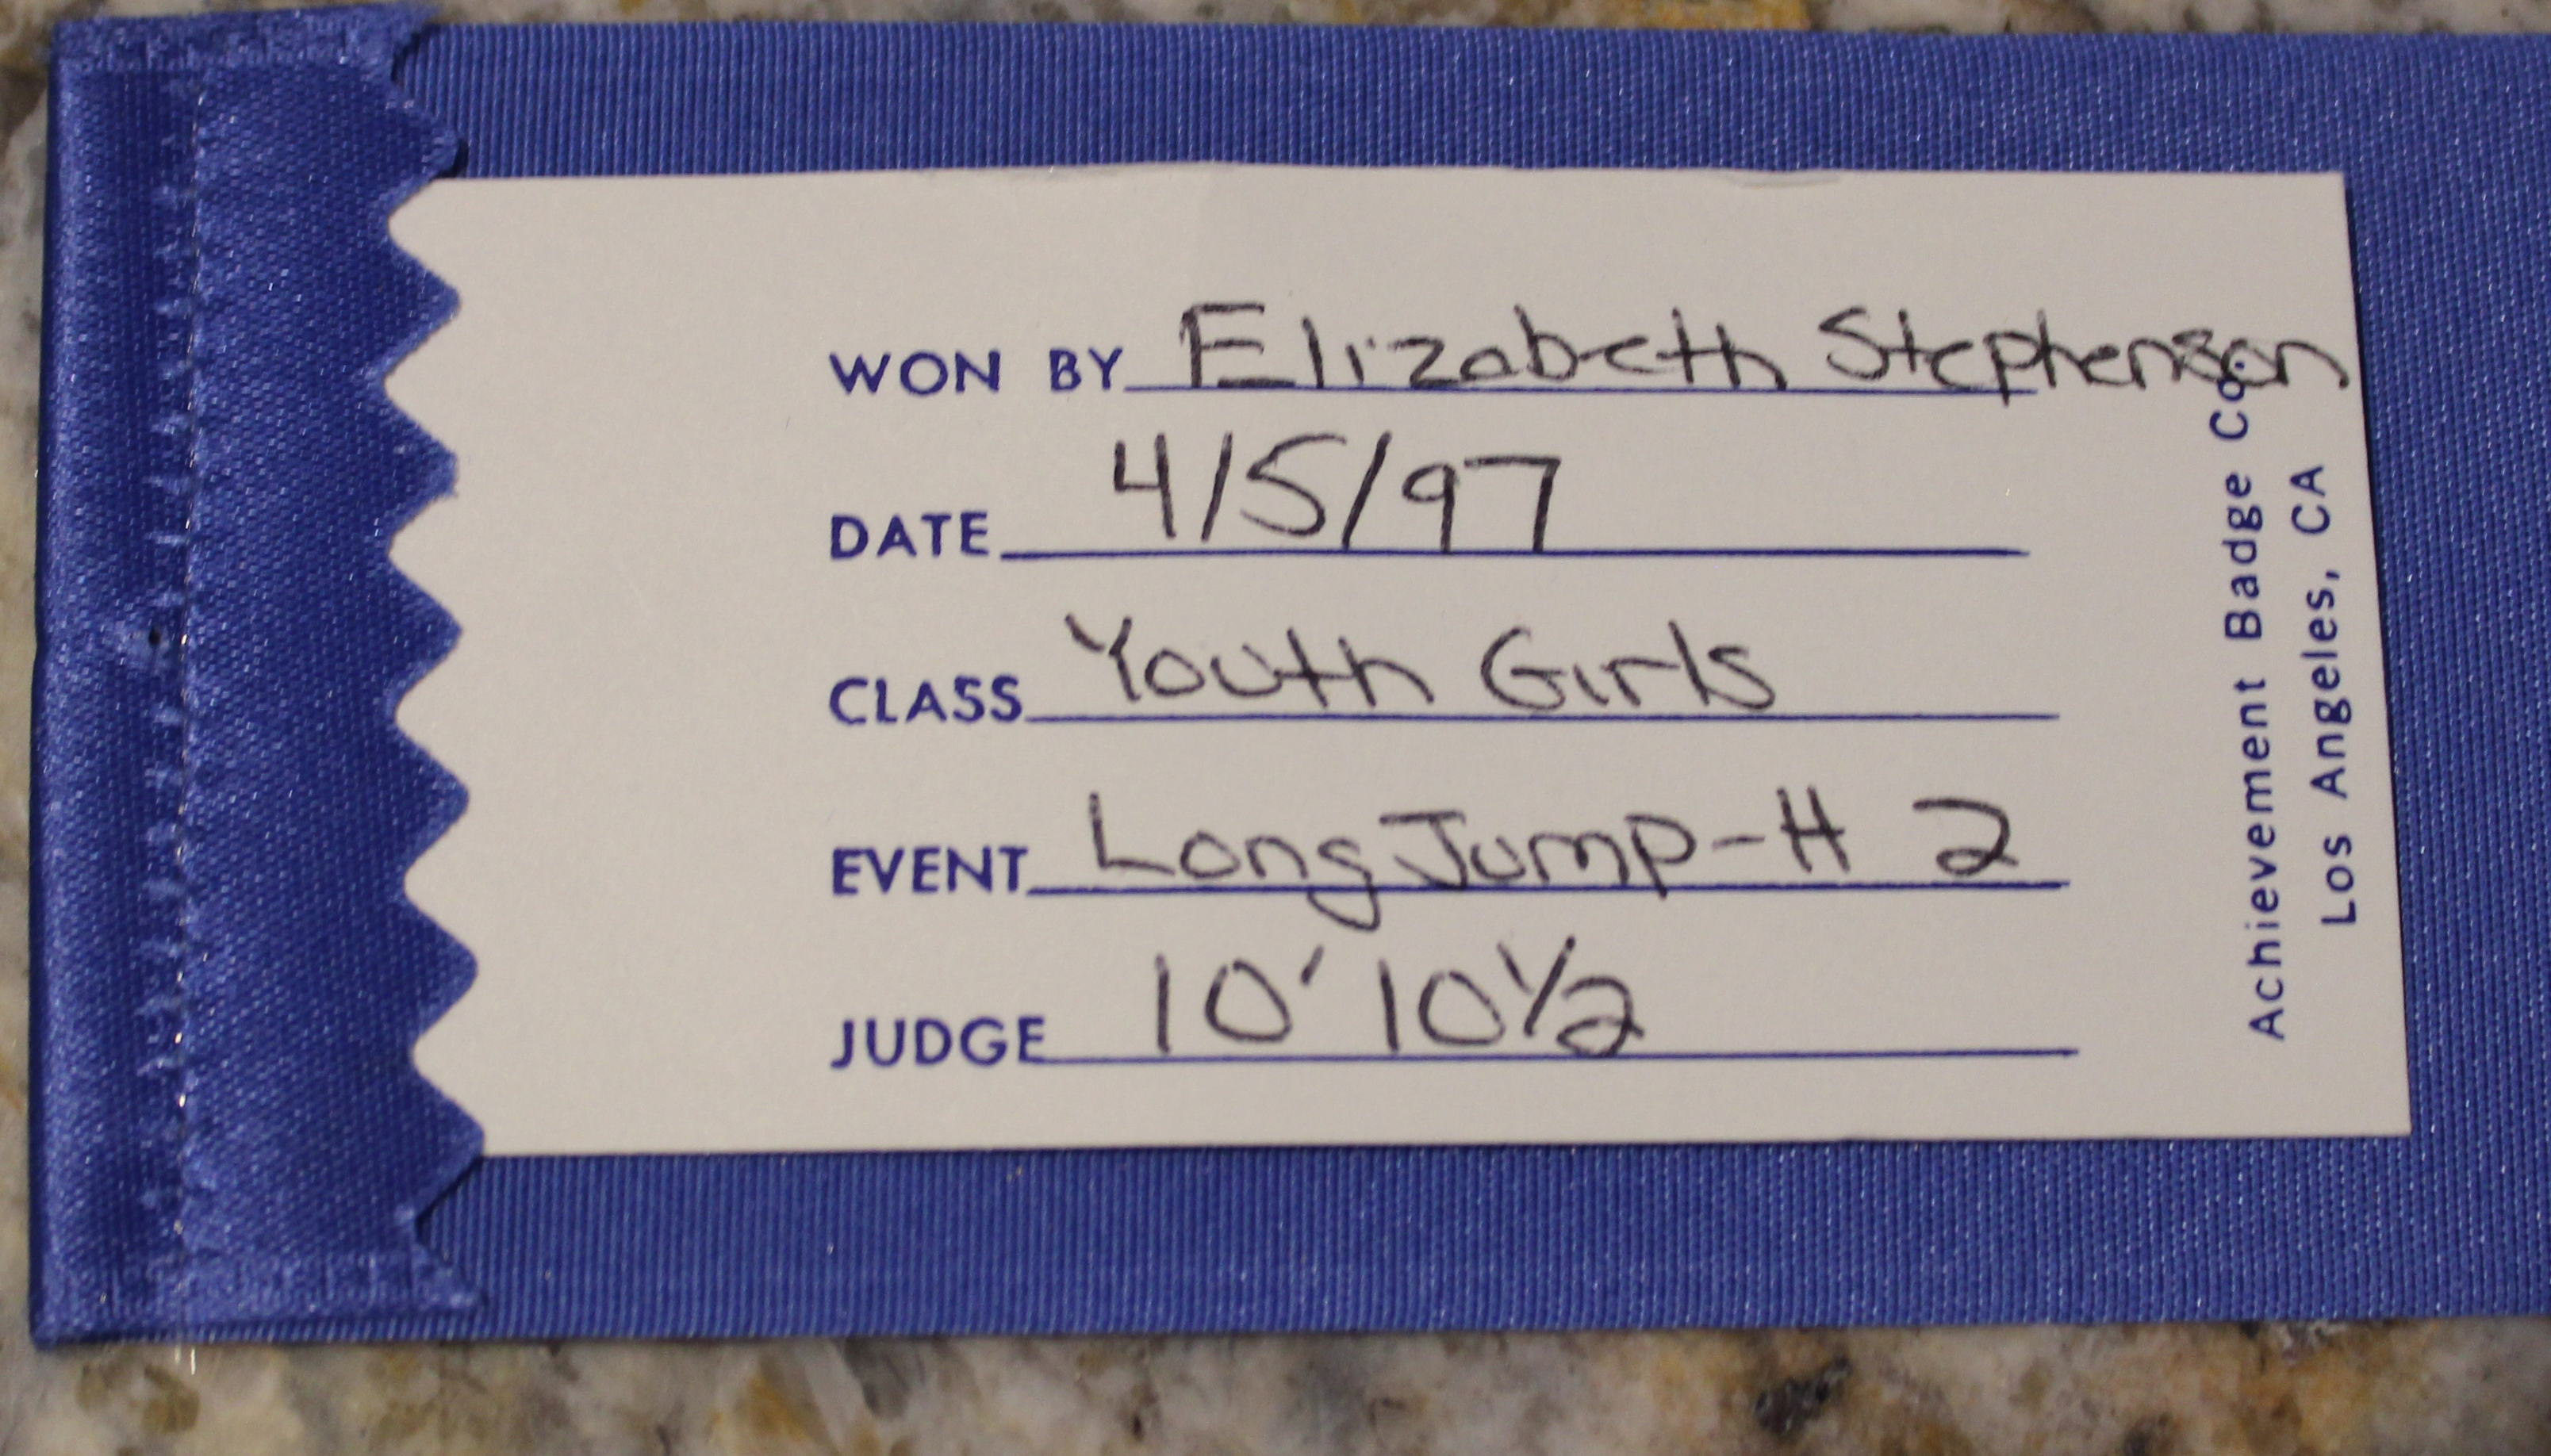 WON BY Elizabeth Stephenson
DATE 4/5/97
CLASS Youth Girls
EVENT Long Jump-H 2
JUDGE 10' 10 1/2
Achievement Badge Co.
Los Angeles, CA